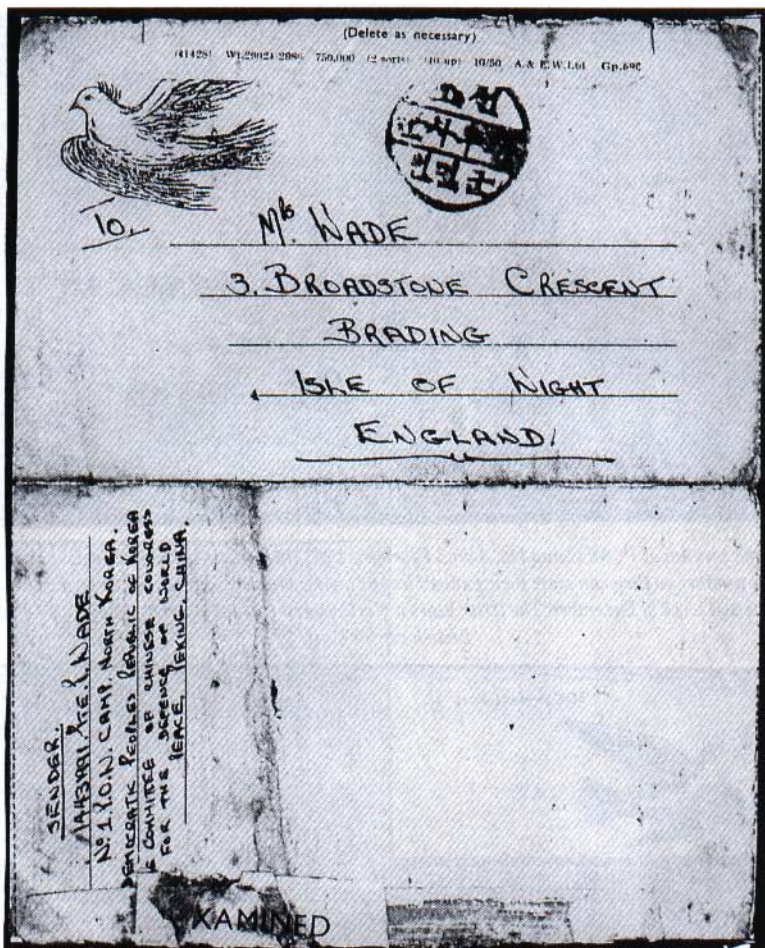 (Delete as necessary)
750,000 (2 sorts) 10/50 A. & E.W.Ltd. Gp.
10.
Mrs. WADE
3. BROADSTONE CRESCENT
BRADING
ISLE OF WIGHT
ENGLAND.
SENDER.
PTE. P. WADE
No. 1. P.O.W. CAMP. NORTH KOREA.
DEMOCRATIC PEOPLES REPUBLIC OF KOREA
COMMITTEE OF CHINESE CONGRESS
FOR THE DEFENCE OF WORLD
PEACE, PEKING, CHINA.
XAMINED